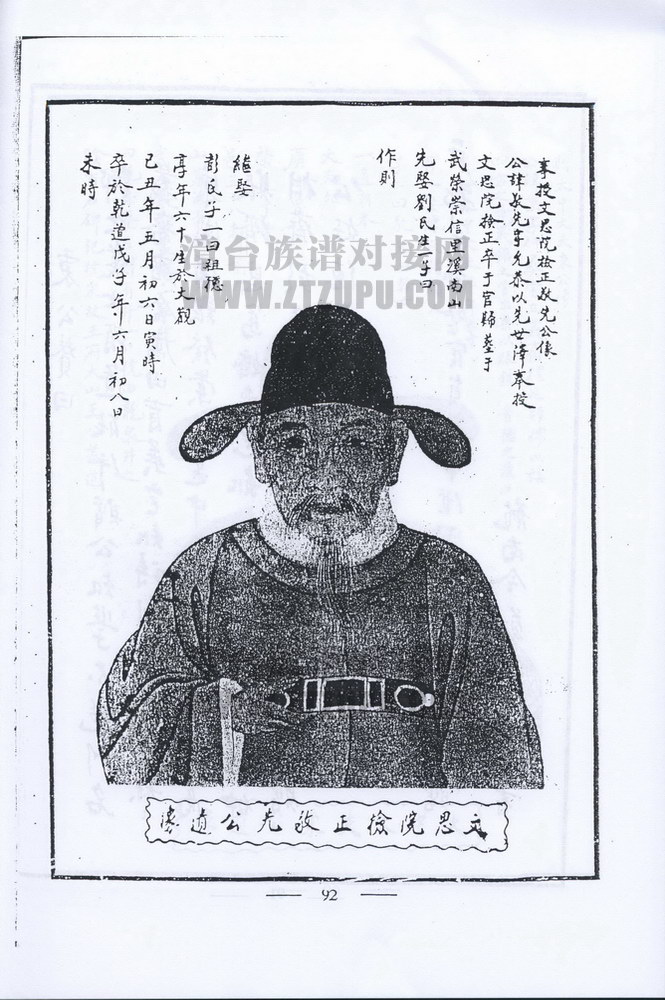 奉授文思院檢正敬先公像
公諱敬先字允恭以先世澤奉授
文思院檢正卒于官歸塟于
武榮崇信里溪南山
先娶劉氏生一子曰
作則
繼娶
彭氏子一曰祖穩
享年六十生於大觀
己丑年五月初六日寅時
卒於乾道戊子年六月初八日
未時
漳台族谱对接网
WWW.ZTZUPU.COM
文思院檢正敬先公遺像
92